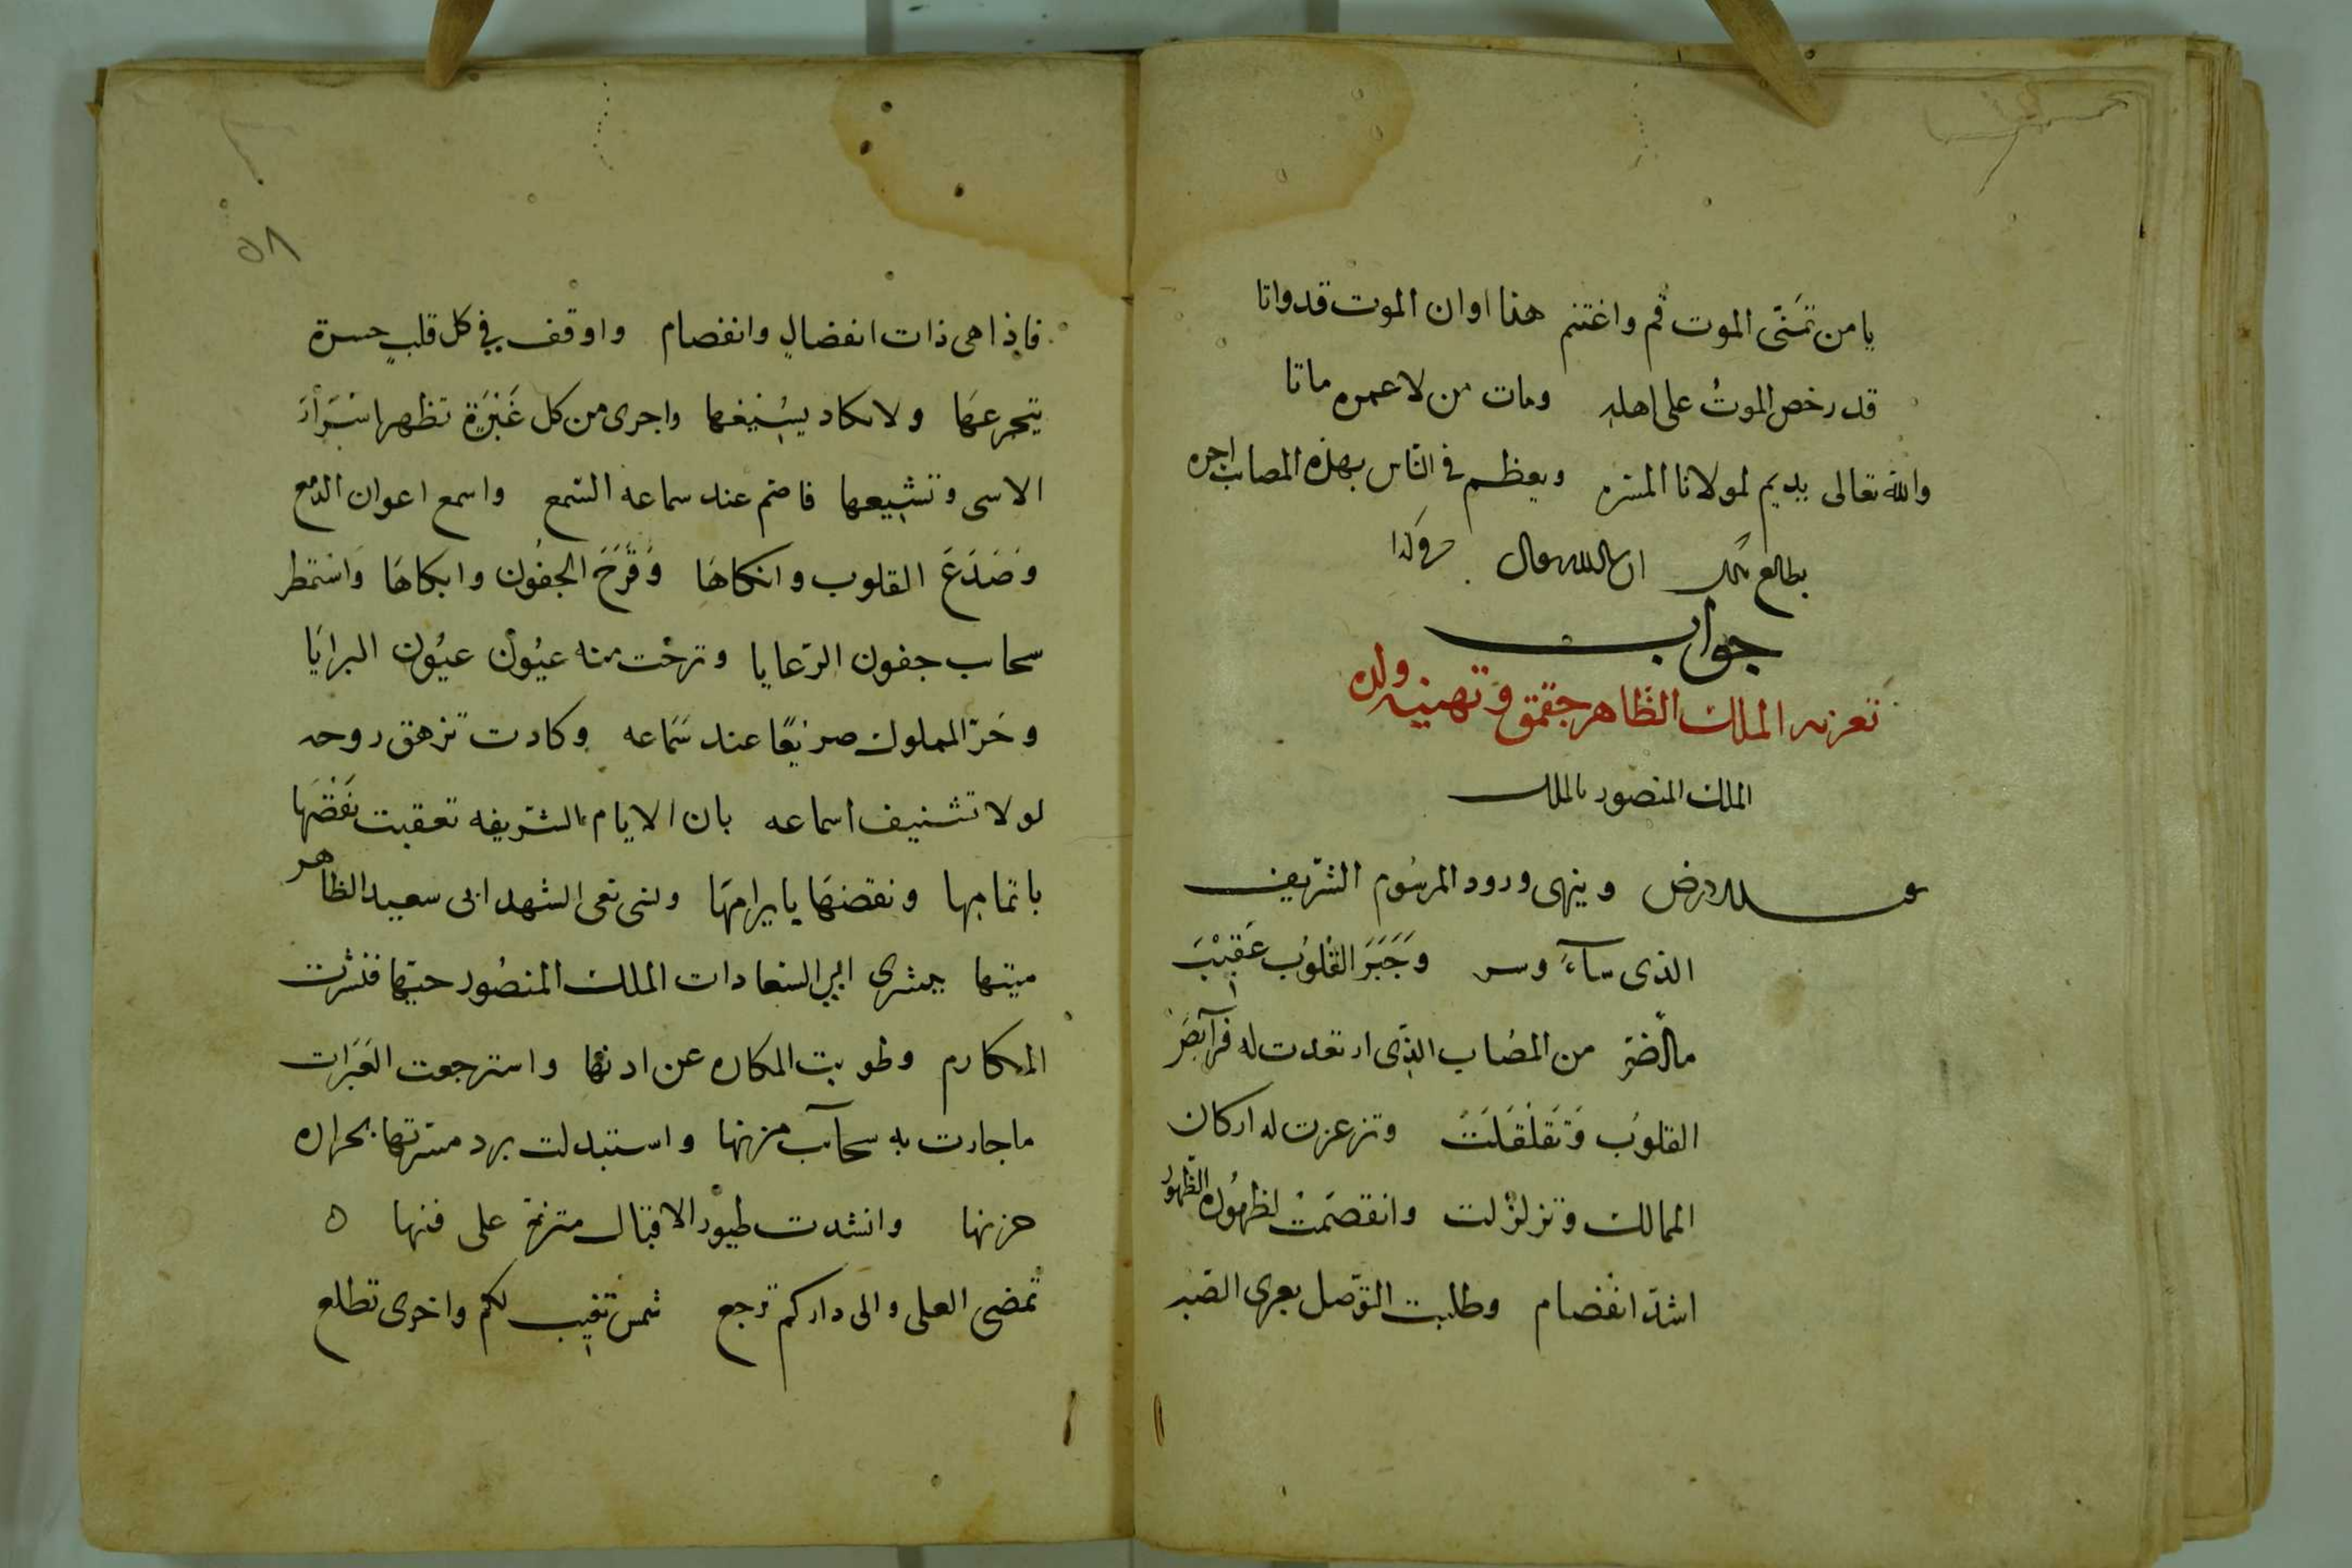 يا من تمَنّى الموت قم واغتنم هذا اوان الموت قد واتا
قد رخص الموتُ على اهله ومات من لا عمره ماتا
والله تعالى يديم لمولانا المسره ويعظم فى الناس بهذه المصاب اجره
يطالع بذلك ان شاء الله تعالى
جواب
تعزيه الملك الظاهر جقمق وتهنيه ولده
الملك المنصور بالملك
الارض وينهى ورود المرسُوم الشريف
الذى سآءَ وسر وَجَبَرَ القلوُب عَقيْبَ
من المصُاب الذى ارتعدت له فرآيصَ
القلوُب وَتَقلْقَلَتْ وتزعزت له اركان
الممالك وتزلزلت وانقصَمَتْ لظهوُره الظهور
اشدّ انفصام وطلبت التوّصل بعرى الصّبر
٥٨
فاذا هى ذات انفصالٍ وانفصام واوقف في كل قلبٍ حسرة
يتجرعهَا ولا يكاد يسْيغها واجرى من كل عَبْرَة تظهر اسْرَارَ
الاسى وتشيعها فاصّم عند سماعه السّمع واسمع اعوان الدّمع
وَصَدَعَ القلوب وانكاهَا وَقَرَّحَ الجفوُن وابكاهَا وَاسْتمطر
سحاب جفون الرّعايا ونزحْت منه عيُونْ عيُون البرايَا
وخَرّ المملوك صريعًا عند سَماعه وكادت تزهق روحه
لولا تشنيف اسماعه بان الايام الشريفه تعقبت نقصَها
باتمامها ونقضهَا بابرامهَا ولئى نعى الشهد ابى سعيد الظاهر
ميتها ببشرى ابي السّعادات الملك المنصُور حيّها فنشرت
المكارم وطويت المكاره عن ادنها واسترجعت العَبَرات
ما جادت به سحآب مزنها واستبدلت برد مسّرتها بحراره
حزنها وانشدت طيوُر الاقبال مترنمة على فننها ه
تمضى العلى والى داركم ترجع شمس تغيب لكم واخرى تطلع